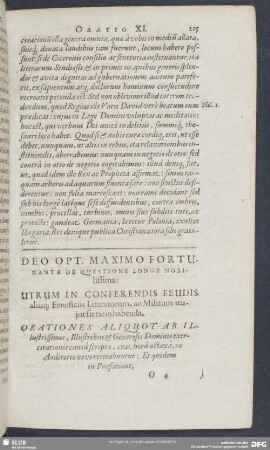 ORATIO XI. 215
creationũ ista genera omnia, quæ à vobis in medium allata,
suisq́; donata laudibus iam fuerunt, locum habere pos-
sunt: si de Ciceronis consilio ac sententia instituantur, ita
literarum Studiosis & in primis iis, quibus generis splen-
dor & avita dignitas ad gubernationem aditum patefe-
cit, ex sapientum atq́; doctorum hominum consuetudine
recreatio petenda est. Sed non oblivioni istud interim tra-
dendum, quod Regius ille Vates David verè beatum eum
prædicat: cujus in Lege Domini voluptas ac meditatio:
hoc est, qui verbum Dei unicè in deliciis, summisq́; the-
sauri loco habet. Quod si & nobis curæ cordiq́; erit, ut esse
debet, nunquam, ut aliis in rebus, ita relaxationibus in-
stituendis, aberrabimus: nunquam in negotiis de otio: sed
contrà in otio de negotio cogitabimus: illud deniq́; fiet,
ut, quod idem ille Rex ac Propheta affirmat, simus tan-
quam arbores ad aquarum fluenta satæ:
non folia marcescant:
sub hisce longè latéque sese diffundentibus, contra imbres,
nimbos, procellas, turbines, omnis suis subditis tuta, ac
protecta: gaudeat Germania, lætetur Polonia, exultet
Hungaria: Res denique publica Christiana tota sibi gratu-
letur.
Psal. 1.
DEO OPT. MAXIMO FORTU-
NANTE DE QUÆSTIONE LONGE NOBI-
lissima:
UTRUM IN CONFERENDIS FEUDIS
aliisq́; Beneficiis Literatorum, an Militum ma-
jor sit ratio habenda,
ORATIONES ALIQUOT AB IL-
lustrissimis, Illustribus & Generosis Dominis exer-
citationis causâ scriptæ, cras, horâ octavâ, in
Auditorio novo recitabuntur: Et quidem
in Præfatione,
O 4
SLUB
Wir führen Wissen.
DFG